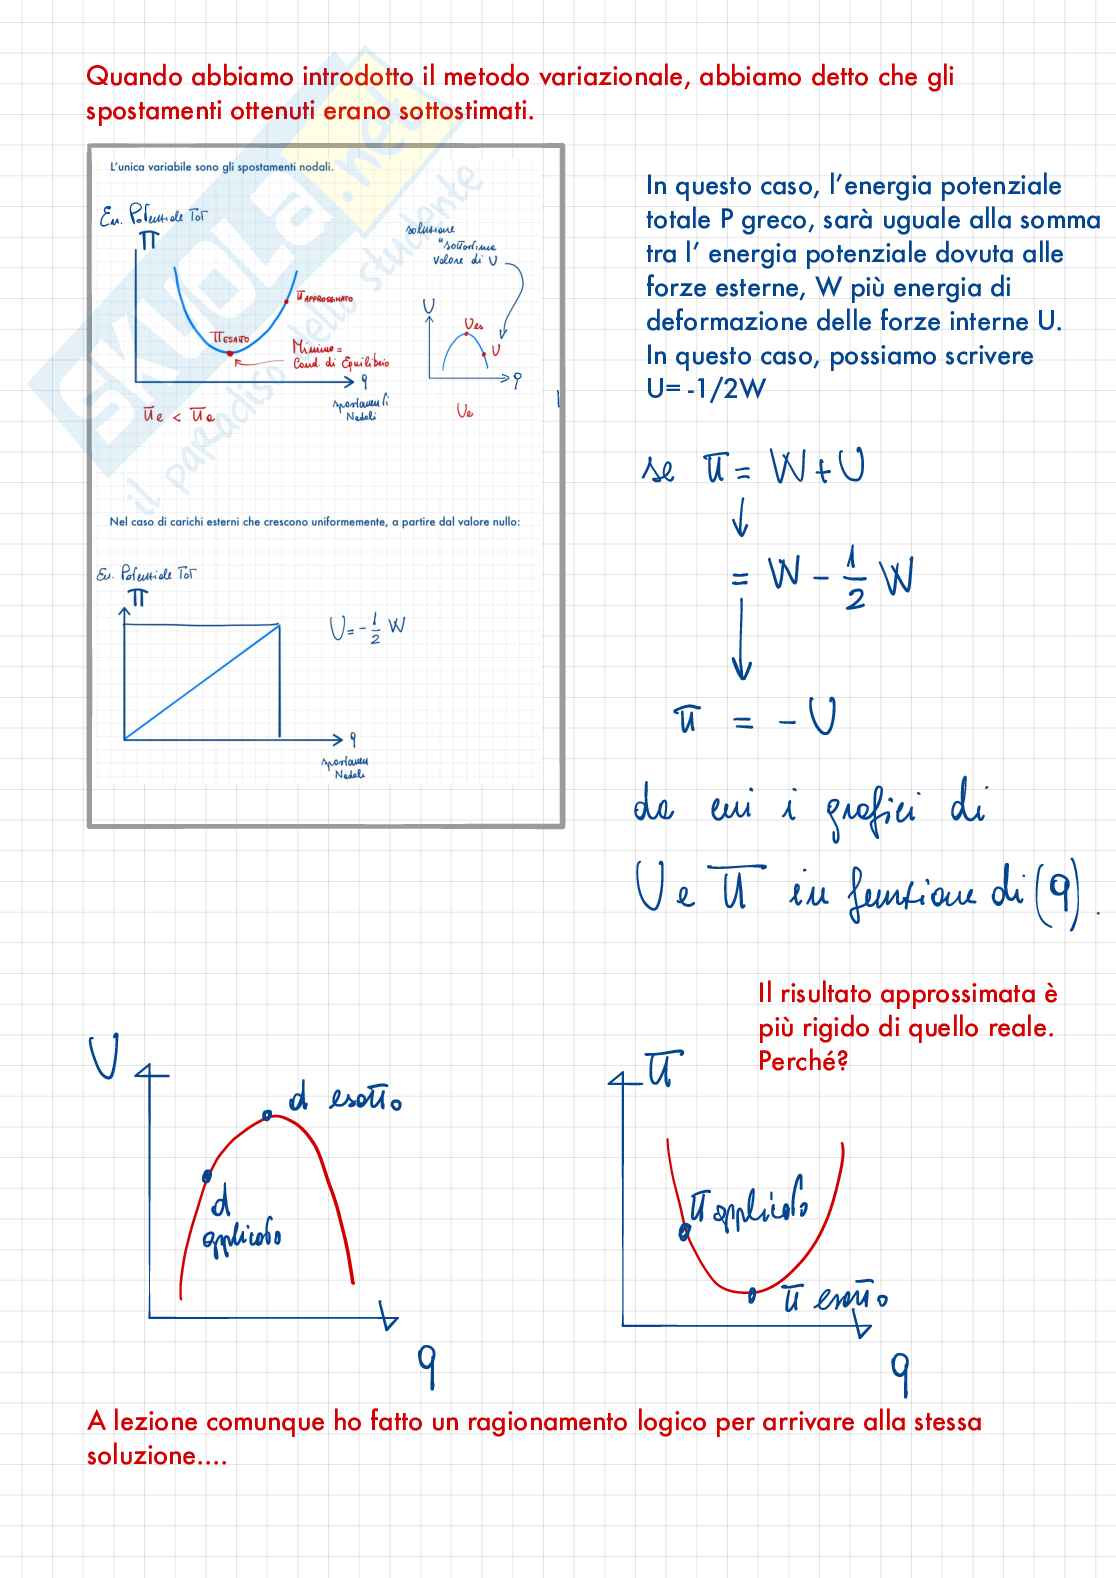 Quando abbiamo introdotto il metodo variazionale, abbiamo detto che gli
spostamenti ottenuti erano sottostimati.
L'unica variabile sono gli spostamenti nodali.
En. Potenziale Tot
π
π APPROSSIMATO
π ESATTO
Minimo =
Cond. di Equilibrio
q
spostamenti
Nodali
πe < πa
soluzione
"sottostima
valore di U
U
Ues
U
q
Ue
Nel caso di carichi esterni che crescono uniformemente, a partire dal valore nullo:
En. Potenziale Tot
π
U = - 1/2 W
q
Nodali
In questo caso, l'energia potenziale
totale P greco, sarà uguale alla somma
tra l' energia potenziale dovuta alle
forze esterne, W più energia di
deformazione delle forze interne U.
In questo caso, possiamo scrivere
U= -1/2W
se π = W + U
= W - 1/2 W
π = - U
da cui i grafici di
U e π in funzione di (q).
Il risultato approssimata è
più rigido di quello reale.
Perché?
U
d esatto
d
applicato
q
π
π applicato
π esatto
q
A lezione comunque ho fatto un ragionamento logico per arrivare alla stessa
soluzione....
SKUOLA.net
il paradiso dello studente